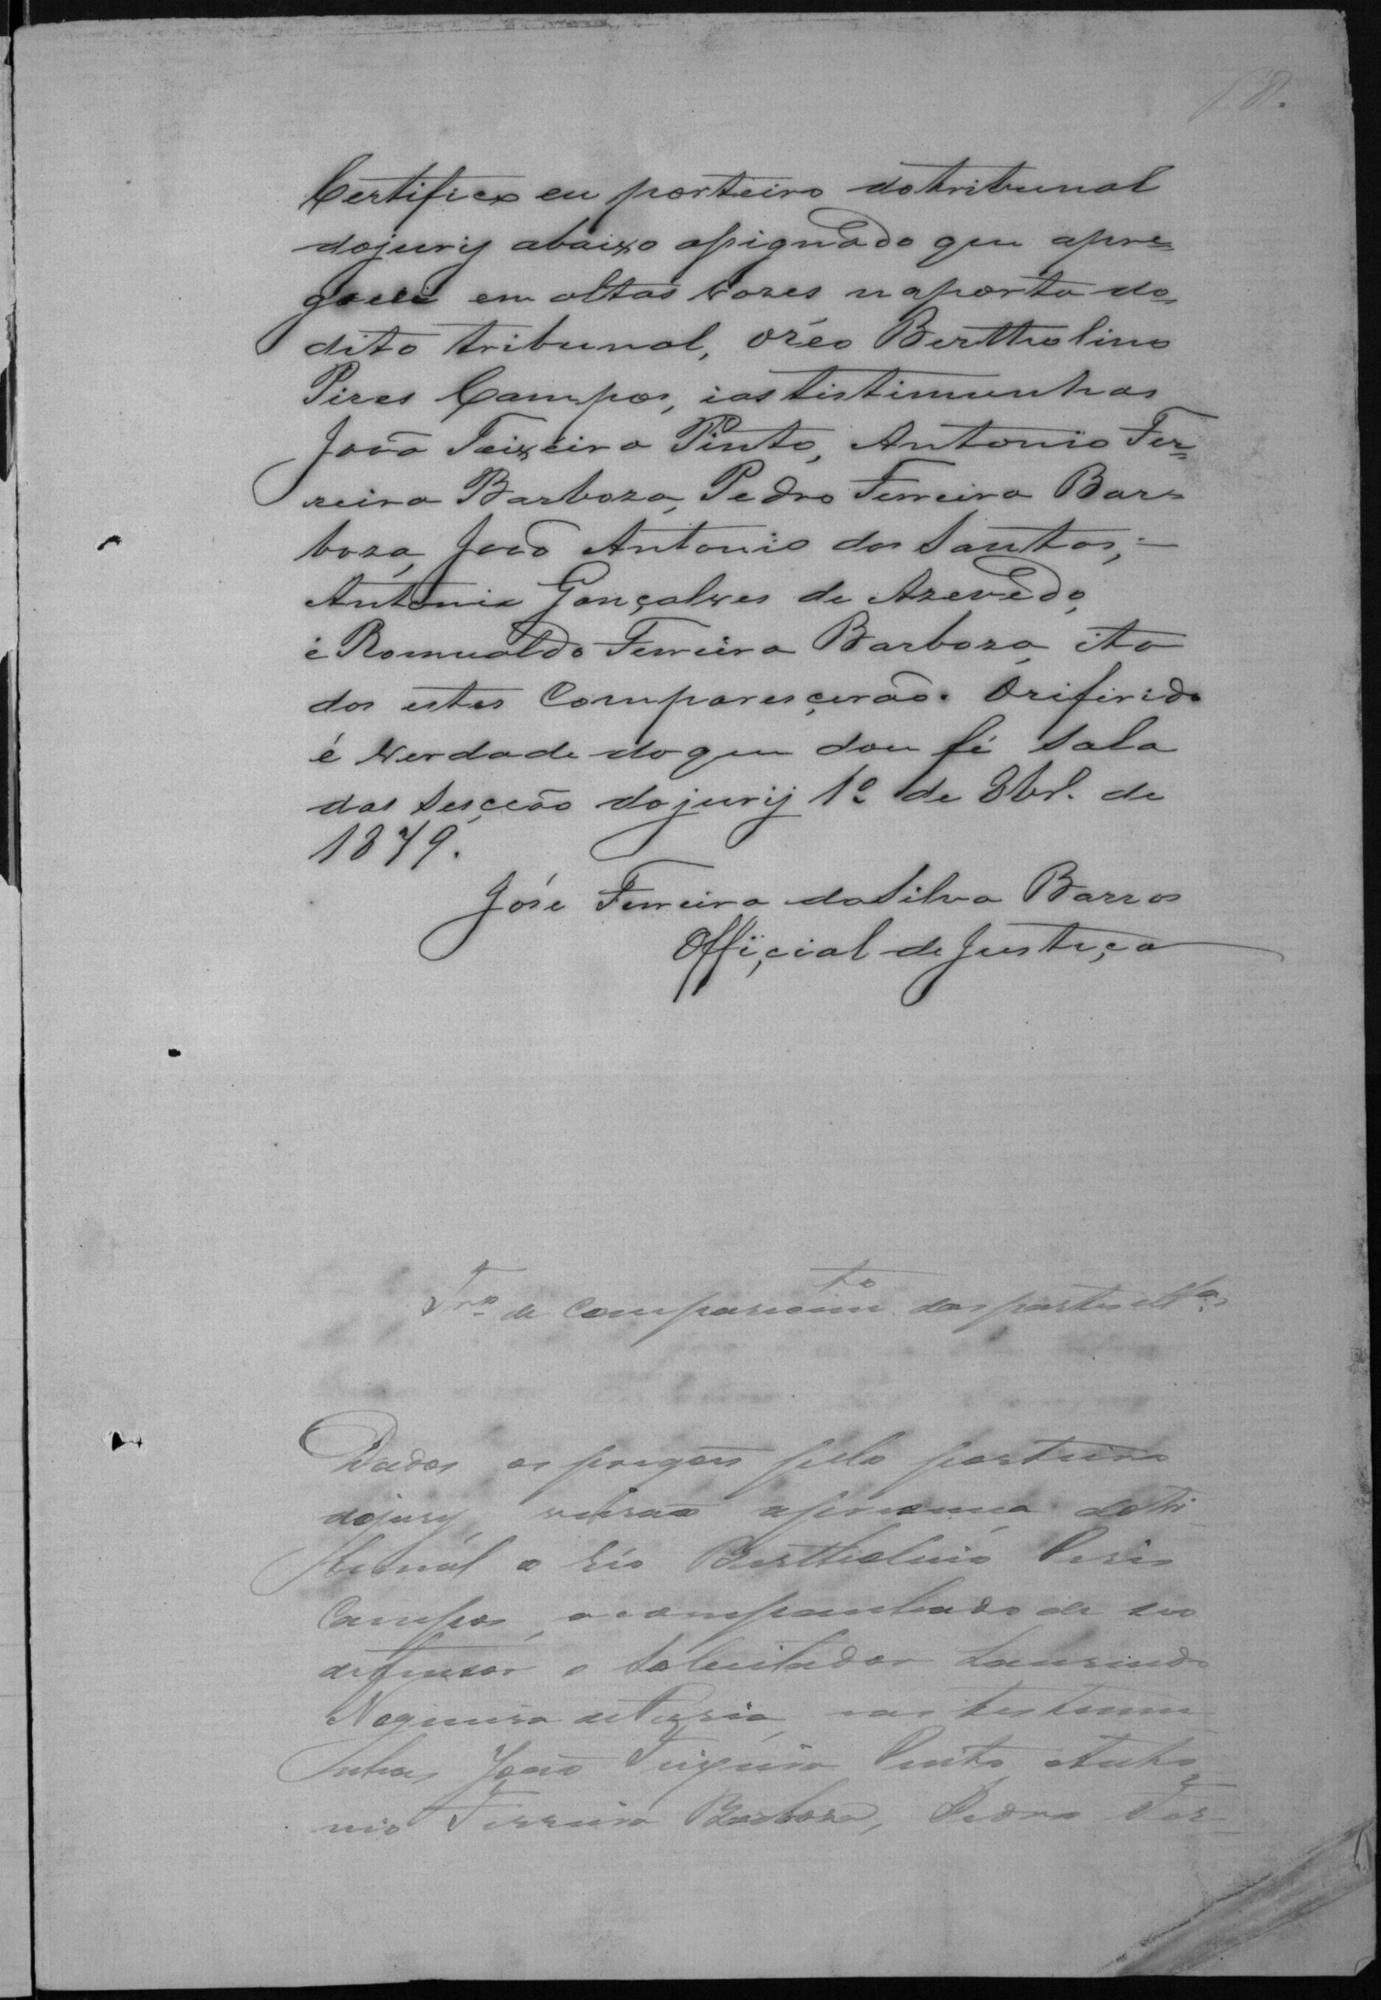 58.
Certifico eu porteiro dotribunal
dojury abaixo assignado que apre=
goei em altas vozes naporta do
dito tribunal, oréo Bertholino
Pires Campos, iastistimunhas
João Teixeira Pinto, Antonio Fer=
reira Barboza, Pedro Ferreira Bar=
boza, João Antonio dos Santos,
Antonio Gonçalves de Azevedo,
e Romualdo Ferreira Barboza, ito
dos estes Comparesçerão. Oriferido
é verdade doque dou fé Sala
das Sesções dojury 1º de 8br. de
1879.
José Ferreira daSilva Barros
Offiçial de Justiça
Trº de Comparecimto das partes e Tas
Dados os pregões pelo porteiro
dojury, vierão apresença dotri
bunal o réo Bertholino Pires
Campos, acompanhado de seo
defensor o Solicitador Laurindo
Nogueira, eas testemu
nhas João Teixeira Pinto, Anto
nio Ferreira Barboza, Pedro Fer-